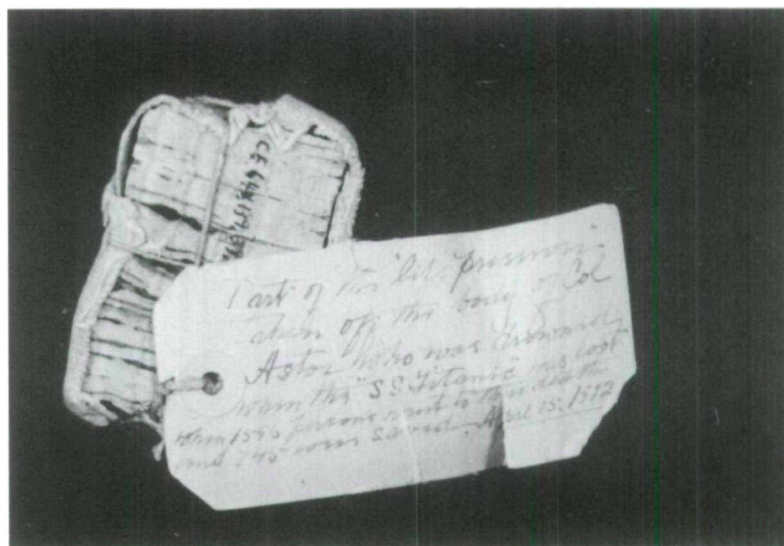 Part of the "life" preserver
taken off the body of Col
Astor who was drowned
when the "S.S. Titanic" was lost
when 15 persons went to their death
and 745 were saved. April 15. 1912